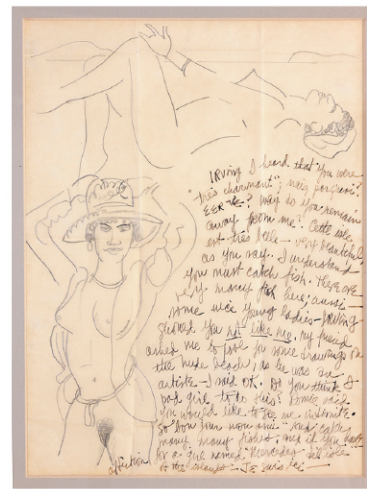 IRVing I heard that you were
"très charmant"; mais pourquoi?
EER-VE? Why do you remain
away from me? Cette isle
est très belle – very beautiful
as you say.. I understand
you must catch fish. There are
very many fish here; aussi –
some nice young ladies –
you not like me, my friend
asked me to pose for some drawings on
the nude beach, as he was an
artiste – I said OK. Do you think I
girl to do this? said
you would like to see me.
So "bon jour mon ami" and catch
many, many fishes, and if you
for a girl named
to the – Je suis ici –
affection